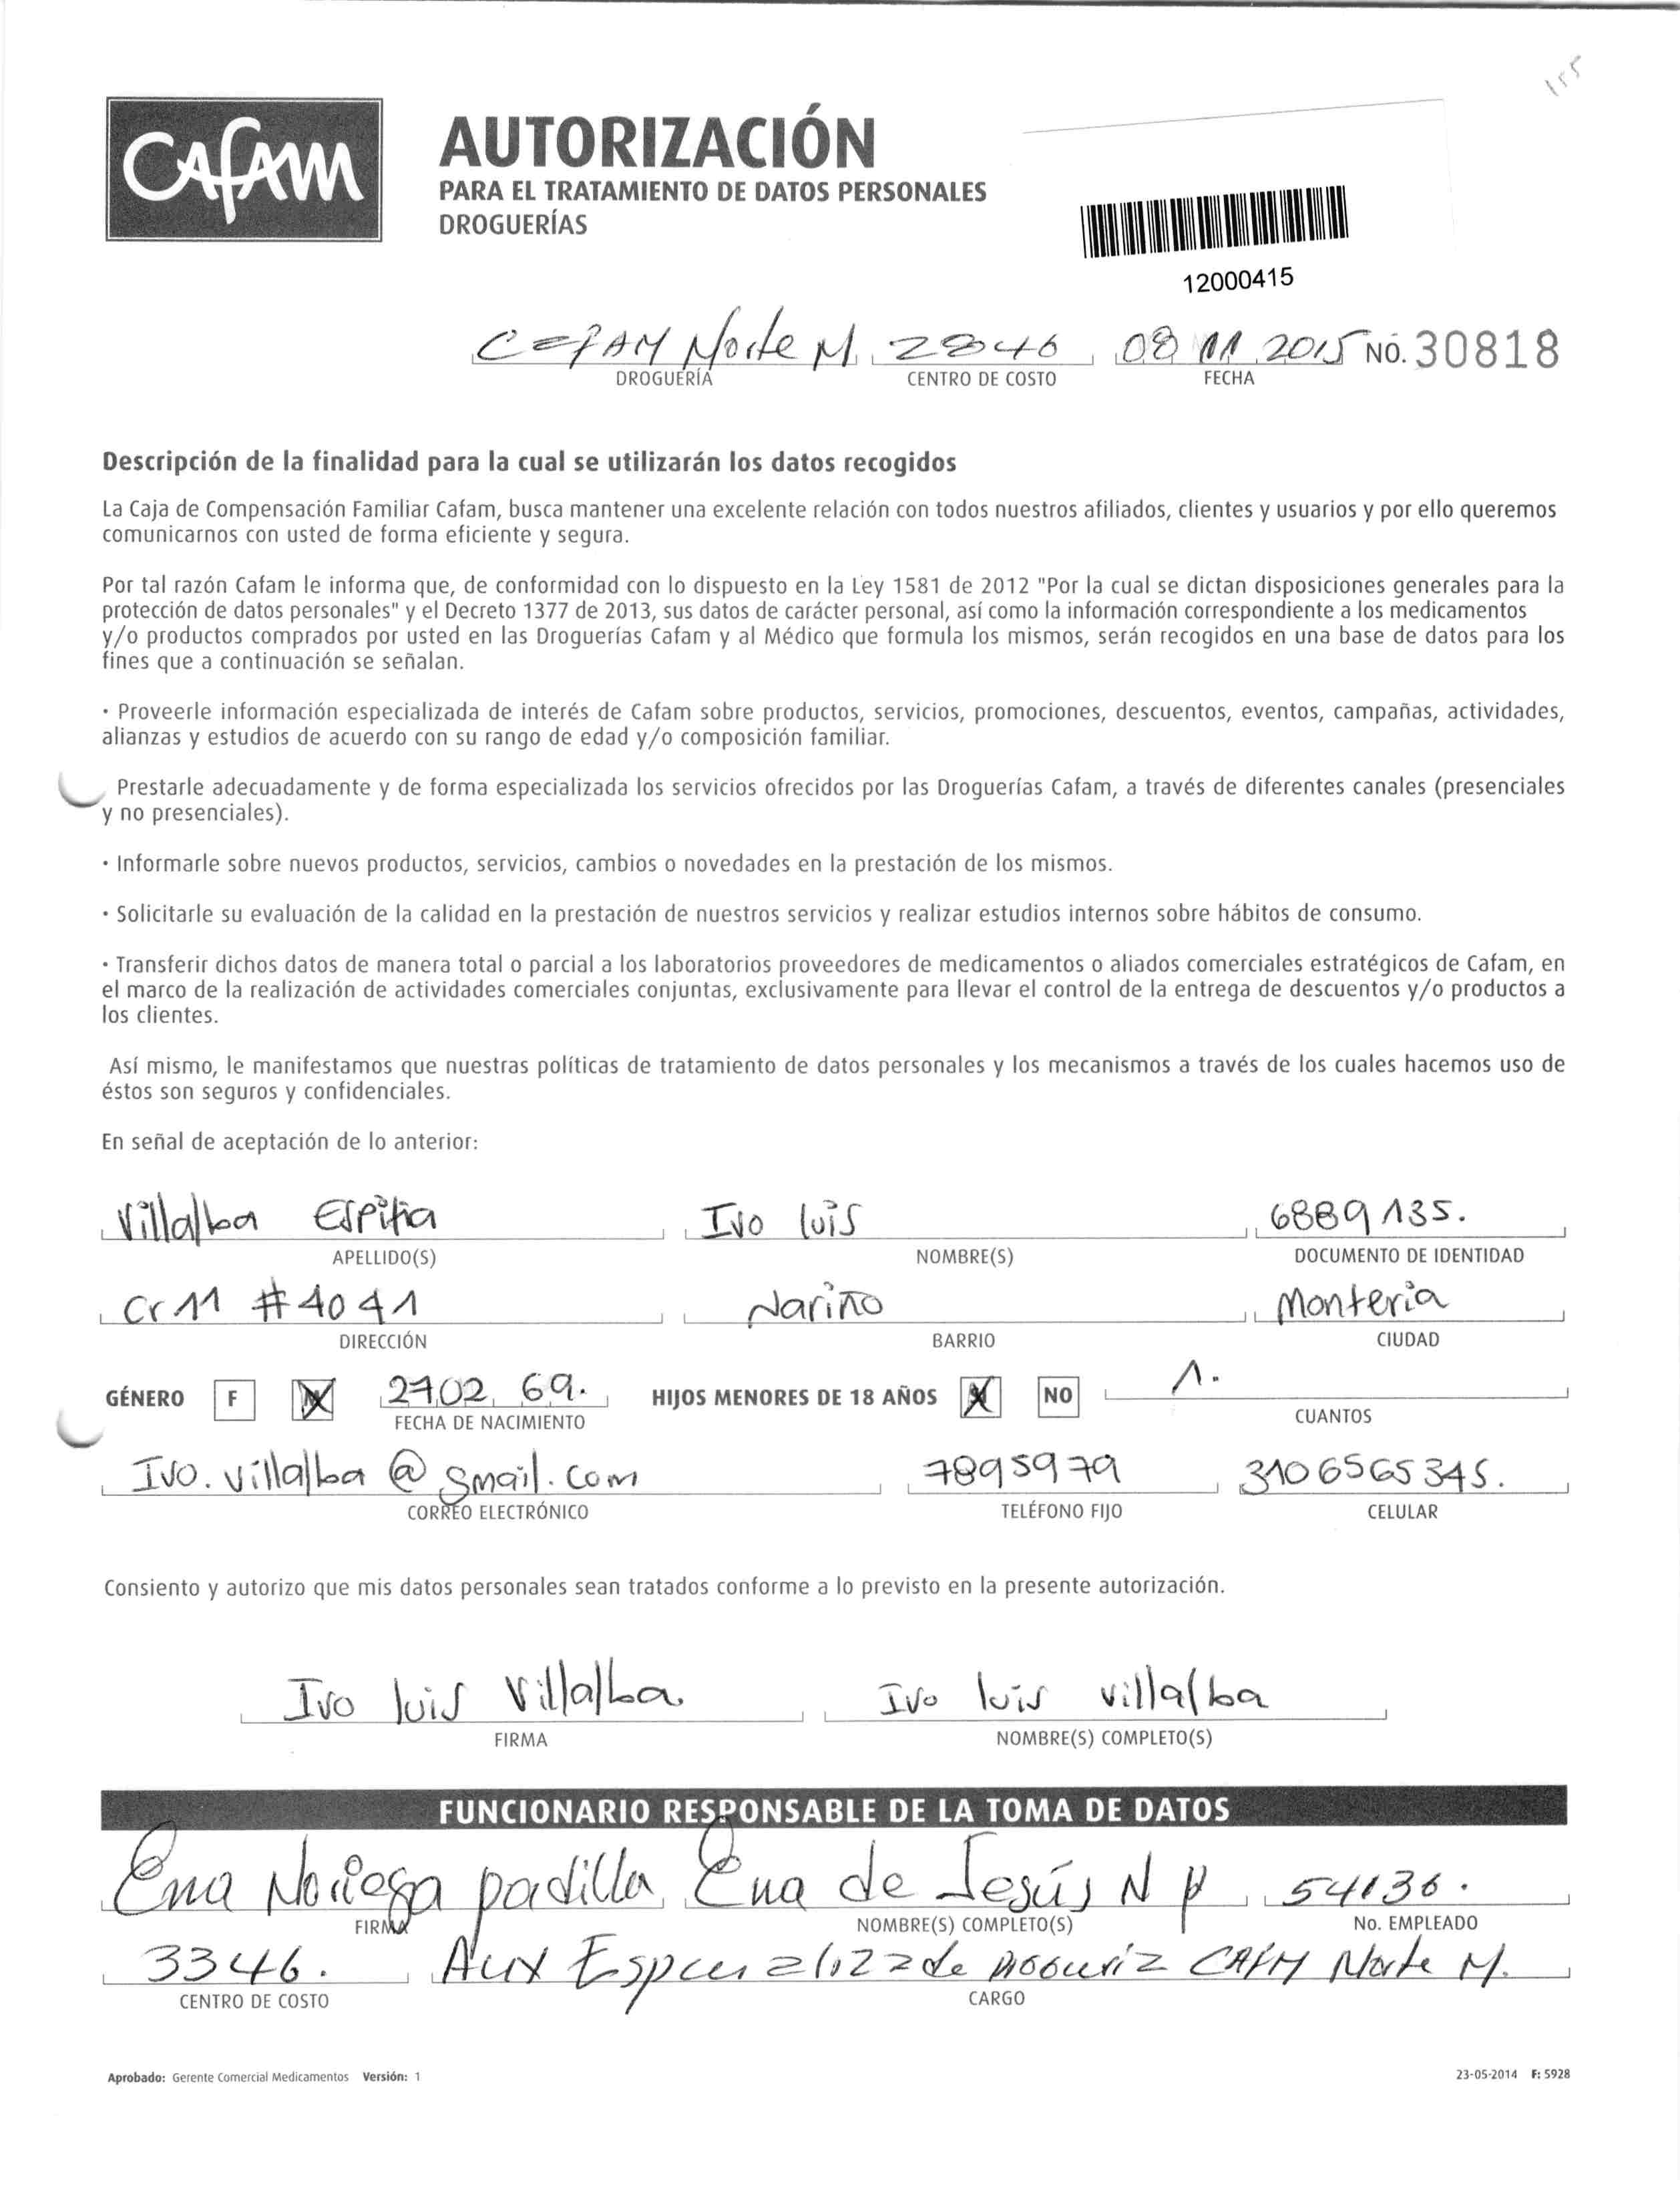 155
CAFAM
AUTORIZACIÓN
PARA EL TRATAMIENTO DE DATOS PERSONALES
DROGUERÍAS
12000415
Norte M 08 11 2015 NO. 30818
DROGUERÍA CENTRO DE COSTO FECHA
Descripción de la finalidad para la cual se utilizarán los datos recogidos
La Caja de Compensación Familiar Cafam, busca mantener una excelente relación con todos nuestros afiliados, clientes y usuarios y por ello queremos
comunicarnos con usted de forma eficiente y segura.
Por tal razón Cafam le informa que, de conformidad con lo dispuesto en la Ley 1581 de 2012 "Por la cual se dictan disposiciones generales para la
protección de datos personales" y el Decreto 1377 de 2013, sus datos de carácter personal, así como la información correspondiente a los medicamentos
y/o productos comprados por usted en las Droguerías Cafam y al Médico que formula los mismos, serán recogidos en una base de datos para los
fines que a continuación se señalan.
· Proveerle información especializada de interés de Cafam sobre productos, servicios, promociones, descuentos, eventos, campañas, actividades,
alianzas y estudios de acuerdo con su rango de edad y/o composición familiar.
Prestarle adecuadamente y de forma especializada los servicios ofrecidos por las Droguerías Cafam, a través de diferentes canales (presenciales
y no presenciales).
· Informarle sobre nuevos productos, servicios, cambios o novedades en la prestación de los mismos.
· Solicitarle su evaluación de la calidad en la prestación de nuestros servicios y realizar estudios internos sobre hábitos de consumo.
· Transferir dichos datos de manera total o parcial a los laboratorios proveedores de medicamentos o aliados comerciales estratégicos de Cafam, en
el marco de la realización de actividades comerciales conjuntas, exclusivamente para llevar el control de la entrega de descuentos y/o productos a
los clientes.
Así mismo, le manifestamos que nuestras políticas de tratamiento de datos personales y los mecanismos a través de los cuales hacemos uso de
éstos son seguros y confidenciales.
En señal de aceptación de lo anterior:
Villalba Espitia Ivo luis 6889135.
APELLIDO(S) NOMBRE(S) DOCUMENTO DE IDENTIDAD
Cr 11 #40 41 Nariño Monteria
DIRECCIÓN BARRIO CIUDAD
GÉNERO F M 27 02 69. HIJOS MENORES DE 18 AÑOS NO 1.
FECHA DE NACIMIENTO CUANTOS
Ivo.villalba@gmail.com 7895979 3106565345.
CORREO ELECTRÓNICO TELÉFONO FIJO CELULAR
Consiento y autorizo que mis datos personales sean tratados conforme a lo previsto en la presente autorización.
Ivo luis Villalba Ivo luis villalba
FIRMA NOMBRE(S) COMPLETO(S)
FUNCIONARIO RESPONSABLE DE LA TOMA DE DATOS
Ena Noriega padilla Ena de Jesús N P 54136.
FIRMA NOMBRE(S) COMPLETO(S) No. EMPLEADO
3346. Aux Norte M.
CENTRO DE COSTO CARGO
Aprobado: Gerente Comercial Medicamentos Versión: 1 23-05-2014 F: 5928